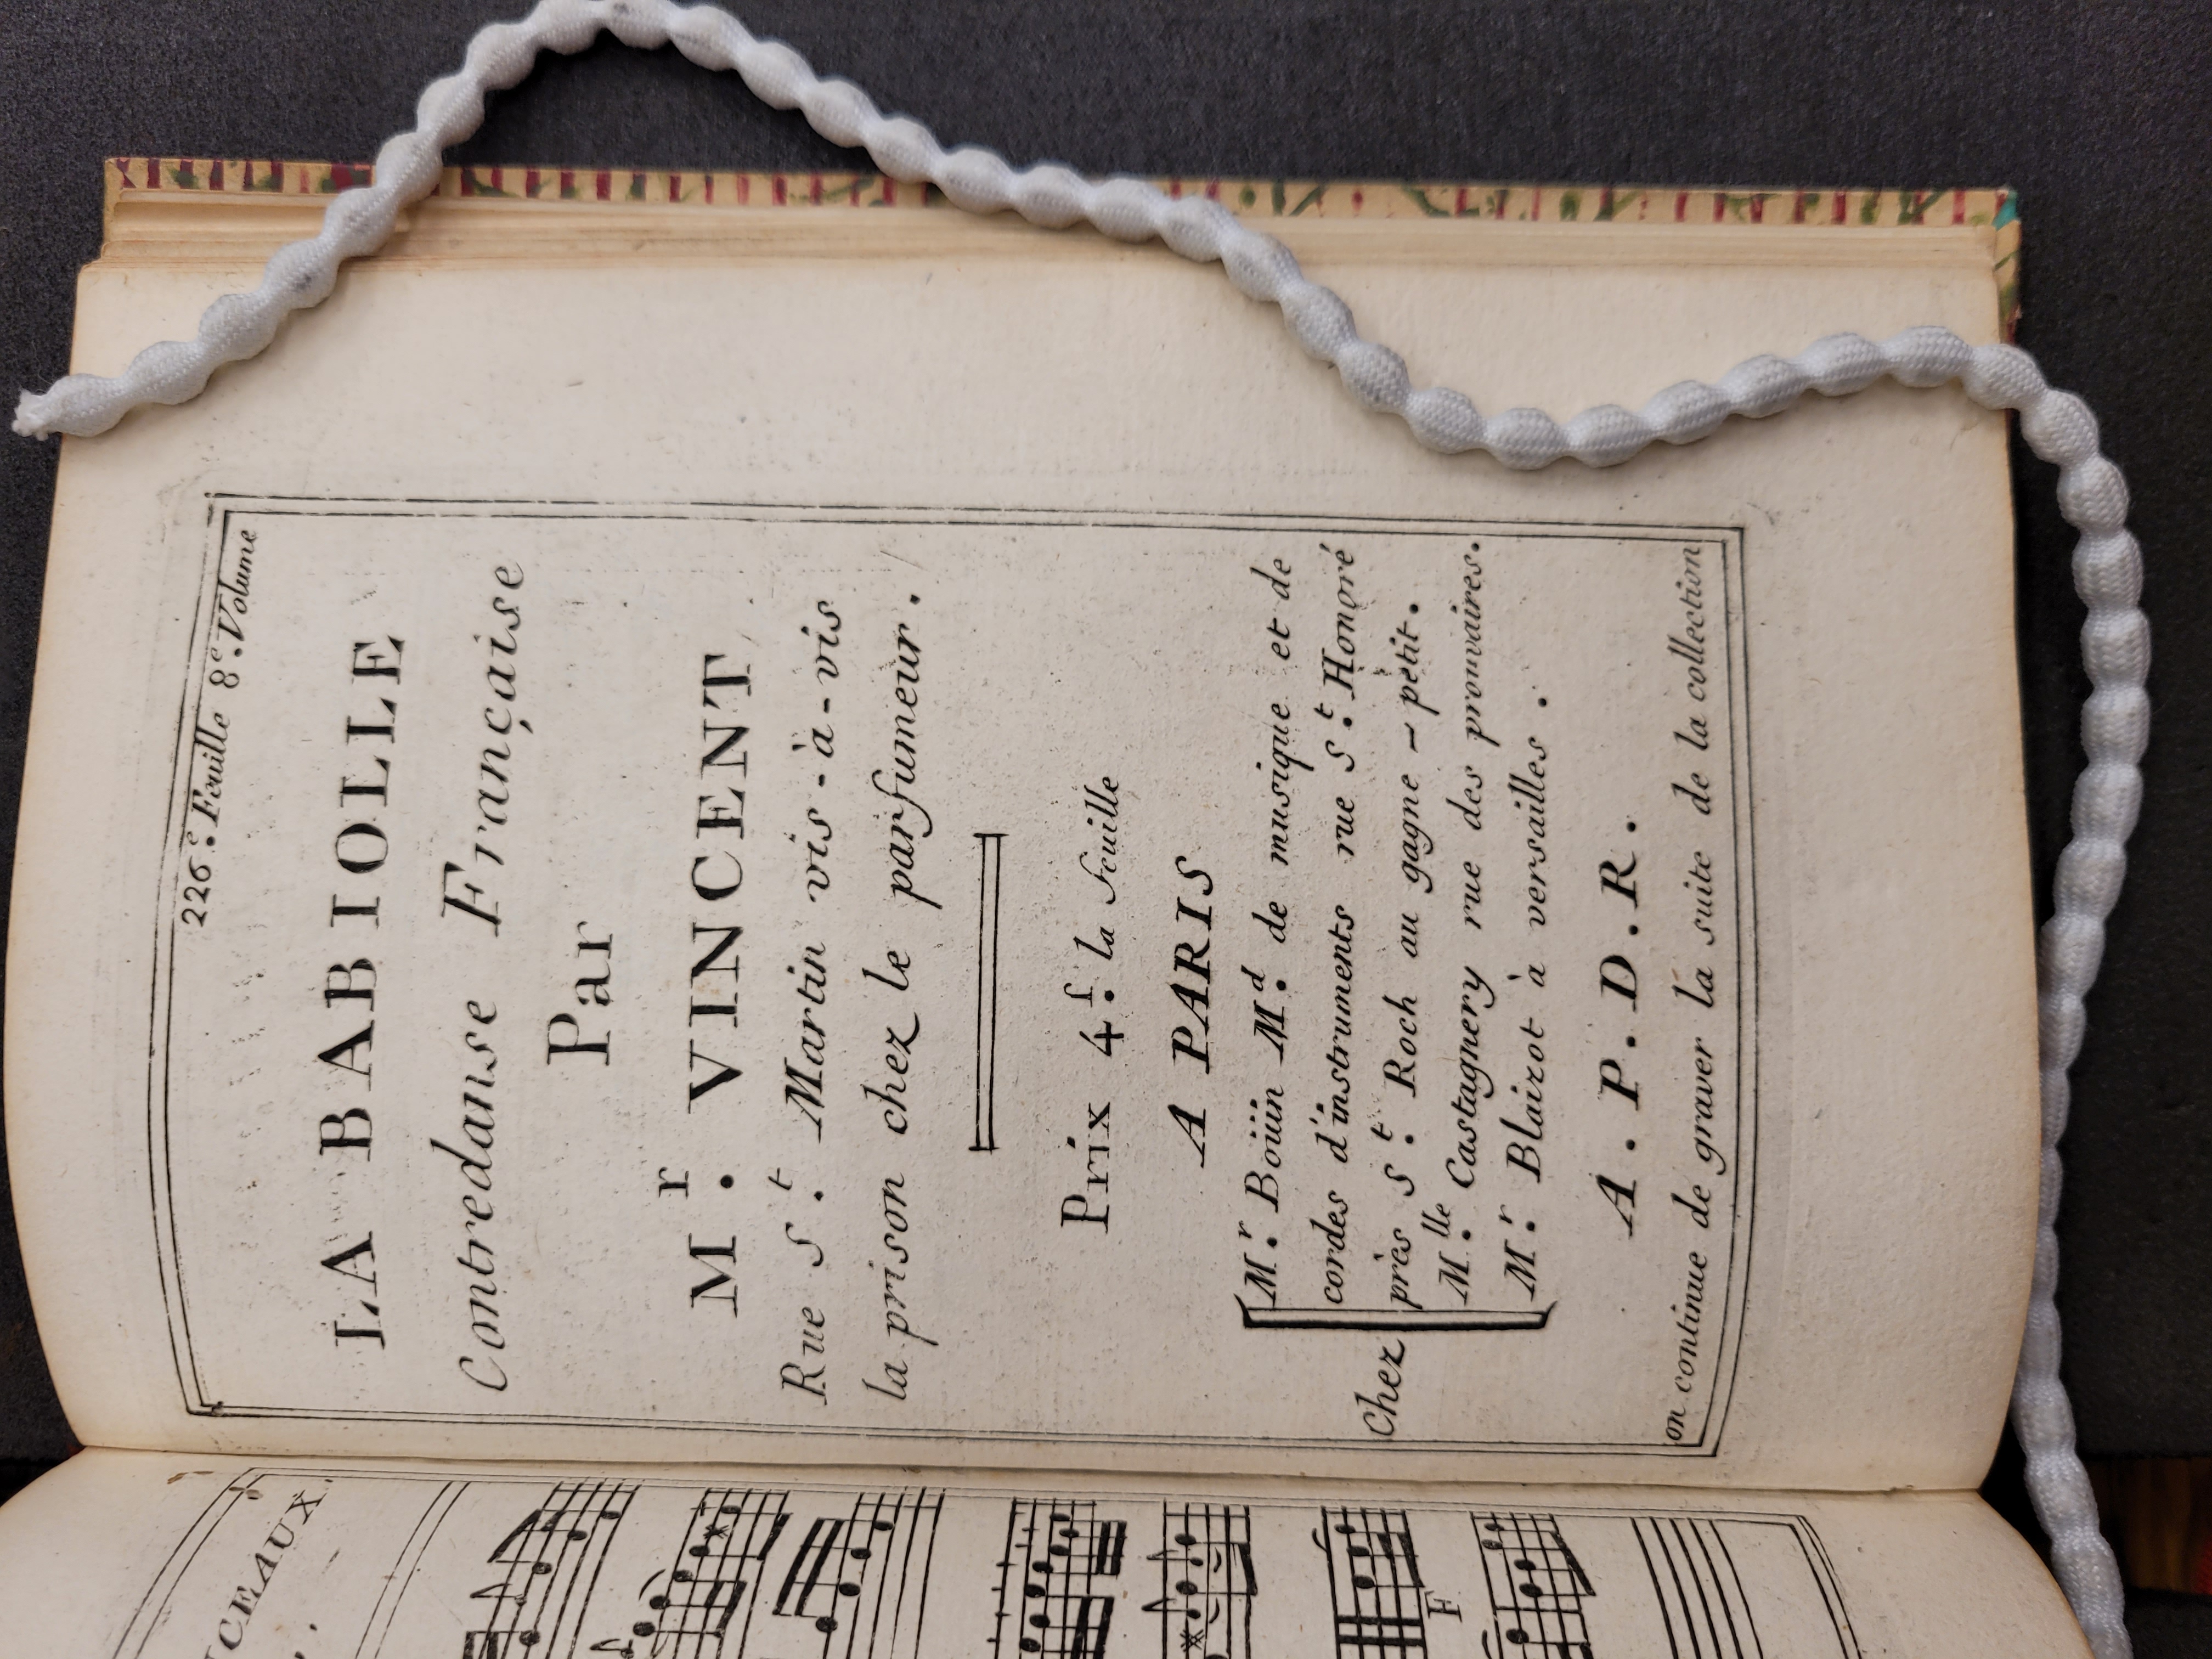 226.e Feuille 8.e Volume
LA BABIOLLE
Contredanse Française
Par
M.r VINCENT
Rue S.t Martin vis-à-vis
la prison chez le parfumeur.
Prix 4.f la feuille
A PARIS
Chez
M.r Boüin M.d de musique et de
cordes d'instruments rue S.t Honoré
près S.t Roch au gagne-petit.
M.lle Castagnery rue des prouvaires.
M.r Blaizot à versailles.
A.P.D.R.
on continue de graver la suite de la collection
CEAUX
F